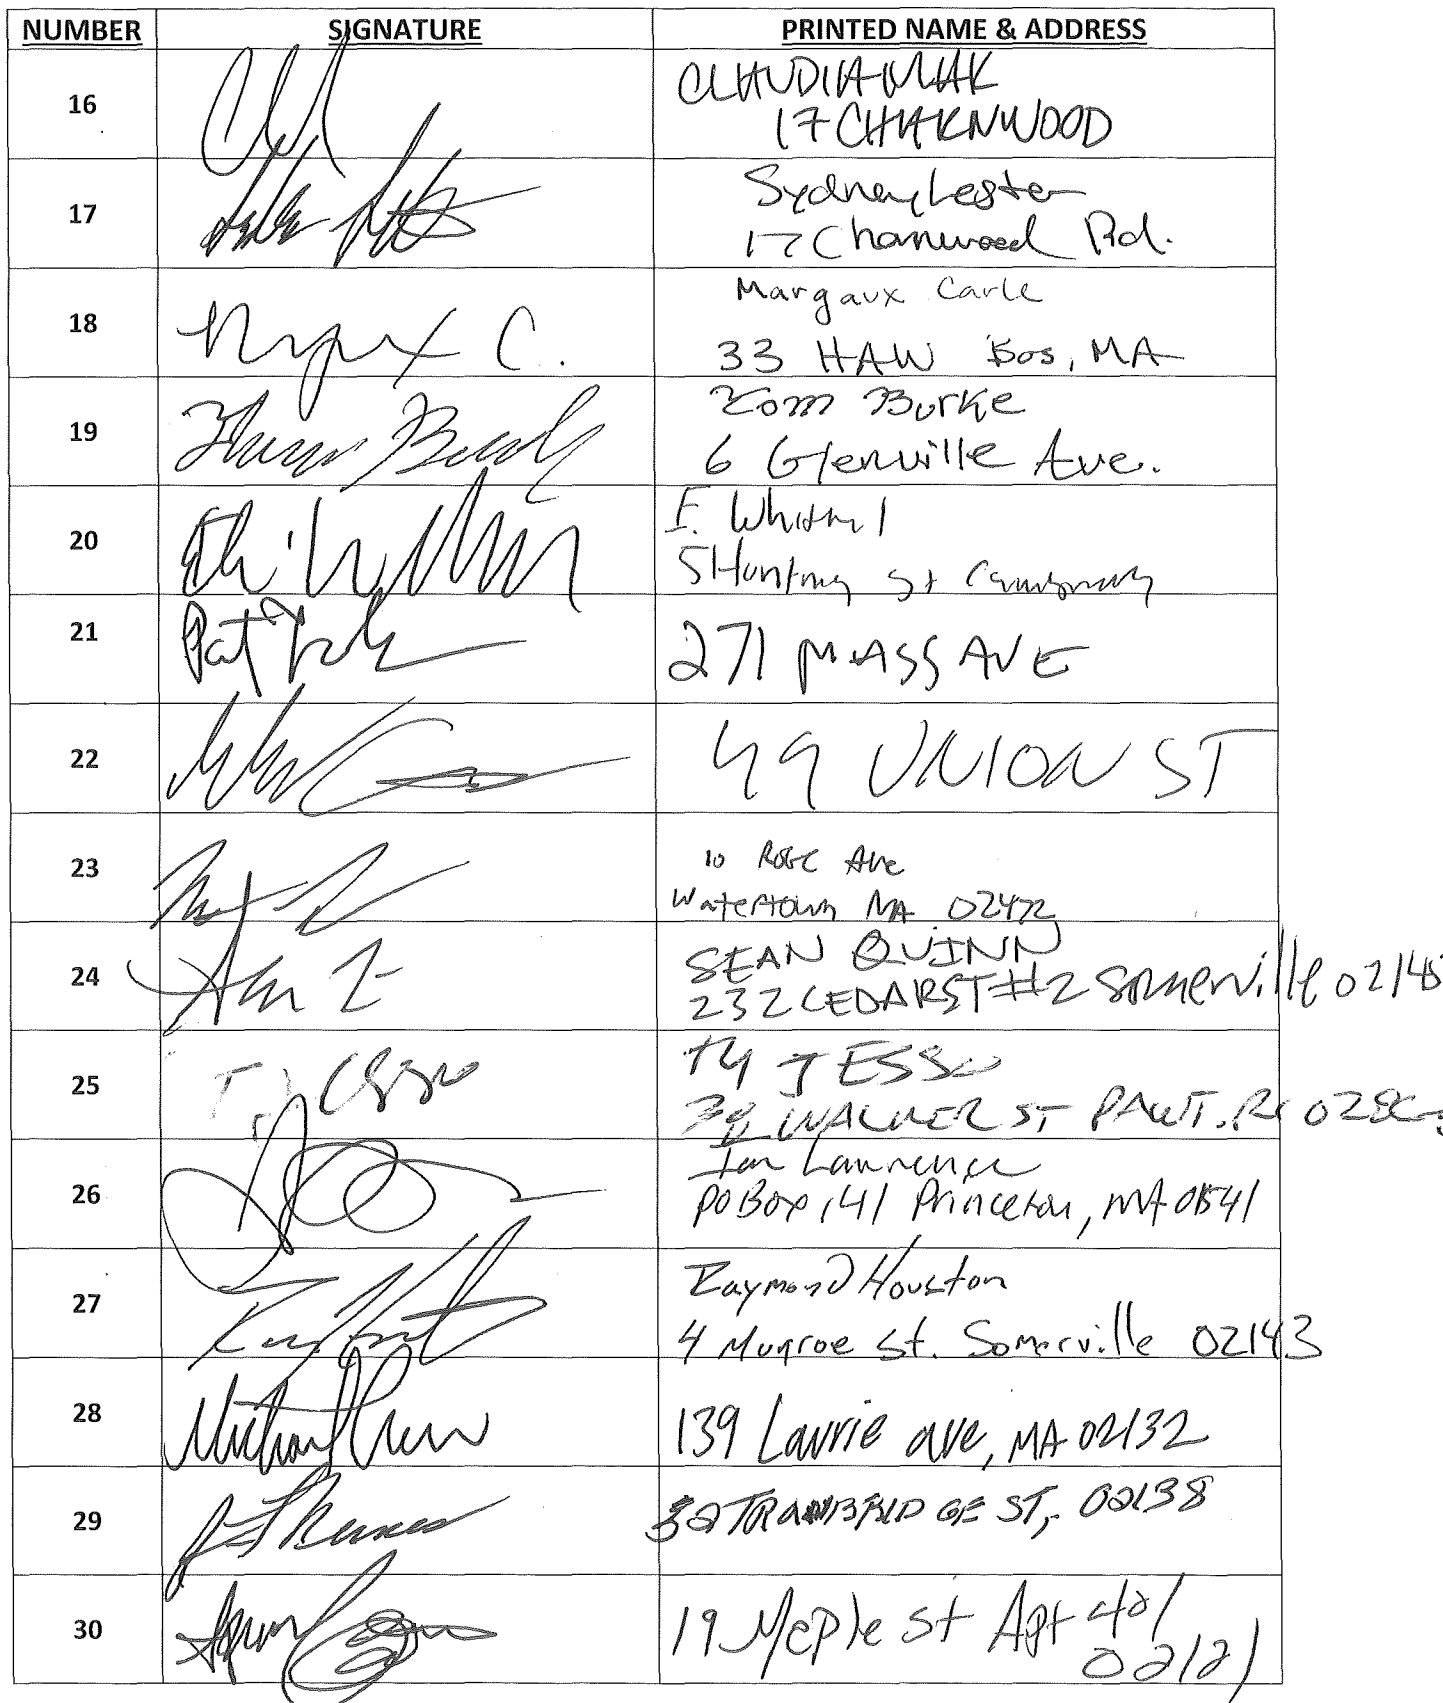 NUMBER SIGNATURE PRINTED NAME & ADDRESS
16 CLAUDIA MAK
17 CHARNWOOD
17 Sydney Lester
17 Charnwood Rd.
18 Margaux C. Margaux Carle
33 HAW Bos, MA
19 Thomas Burke Tom Burke
6 Glenville Ave.
20 E. St
21 Pat 271 MASS AVE
22 49 UNION ST
23 10 Ave
Watertown MA 02472
24 SEAN QUINN
232 CEDAR ST #2 Somerville 02145
25 TY JESSO
ST PAWT. RI
26 Ian Lawrence
PO Box 141 Princeton, MA 01541
27 Raymond Houston
4 Munroe St. Somerville 02143
28 Michael 139 Laurie ave, MA 02132
29 32 TROWBRIDGE ST, 02138
30 19 Maple St Apt 401
02121